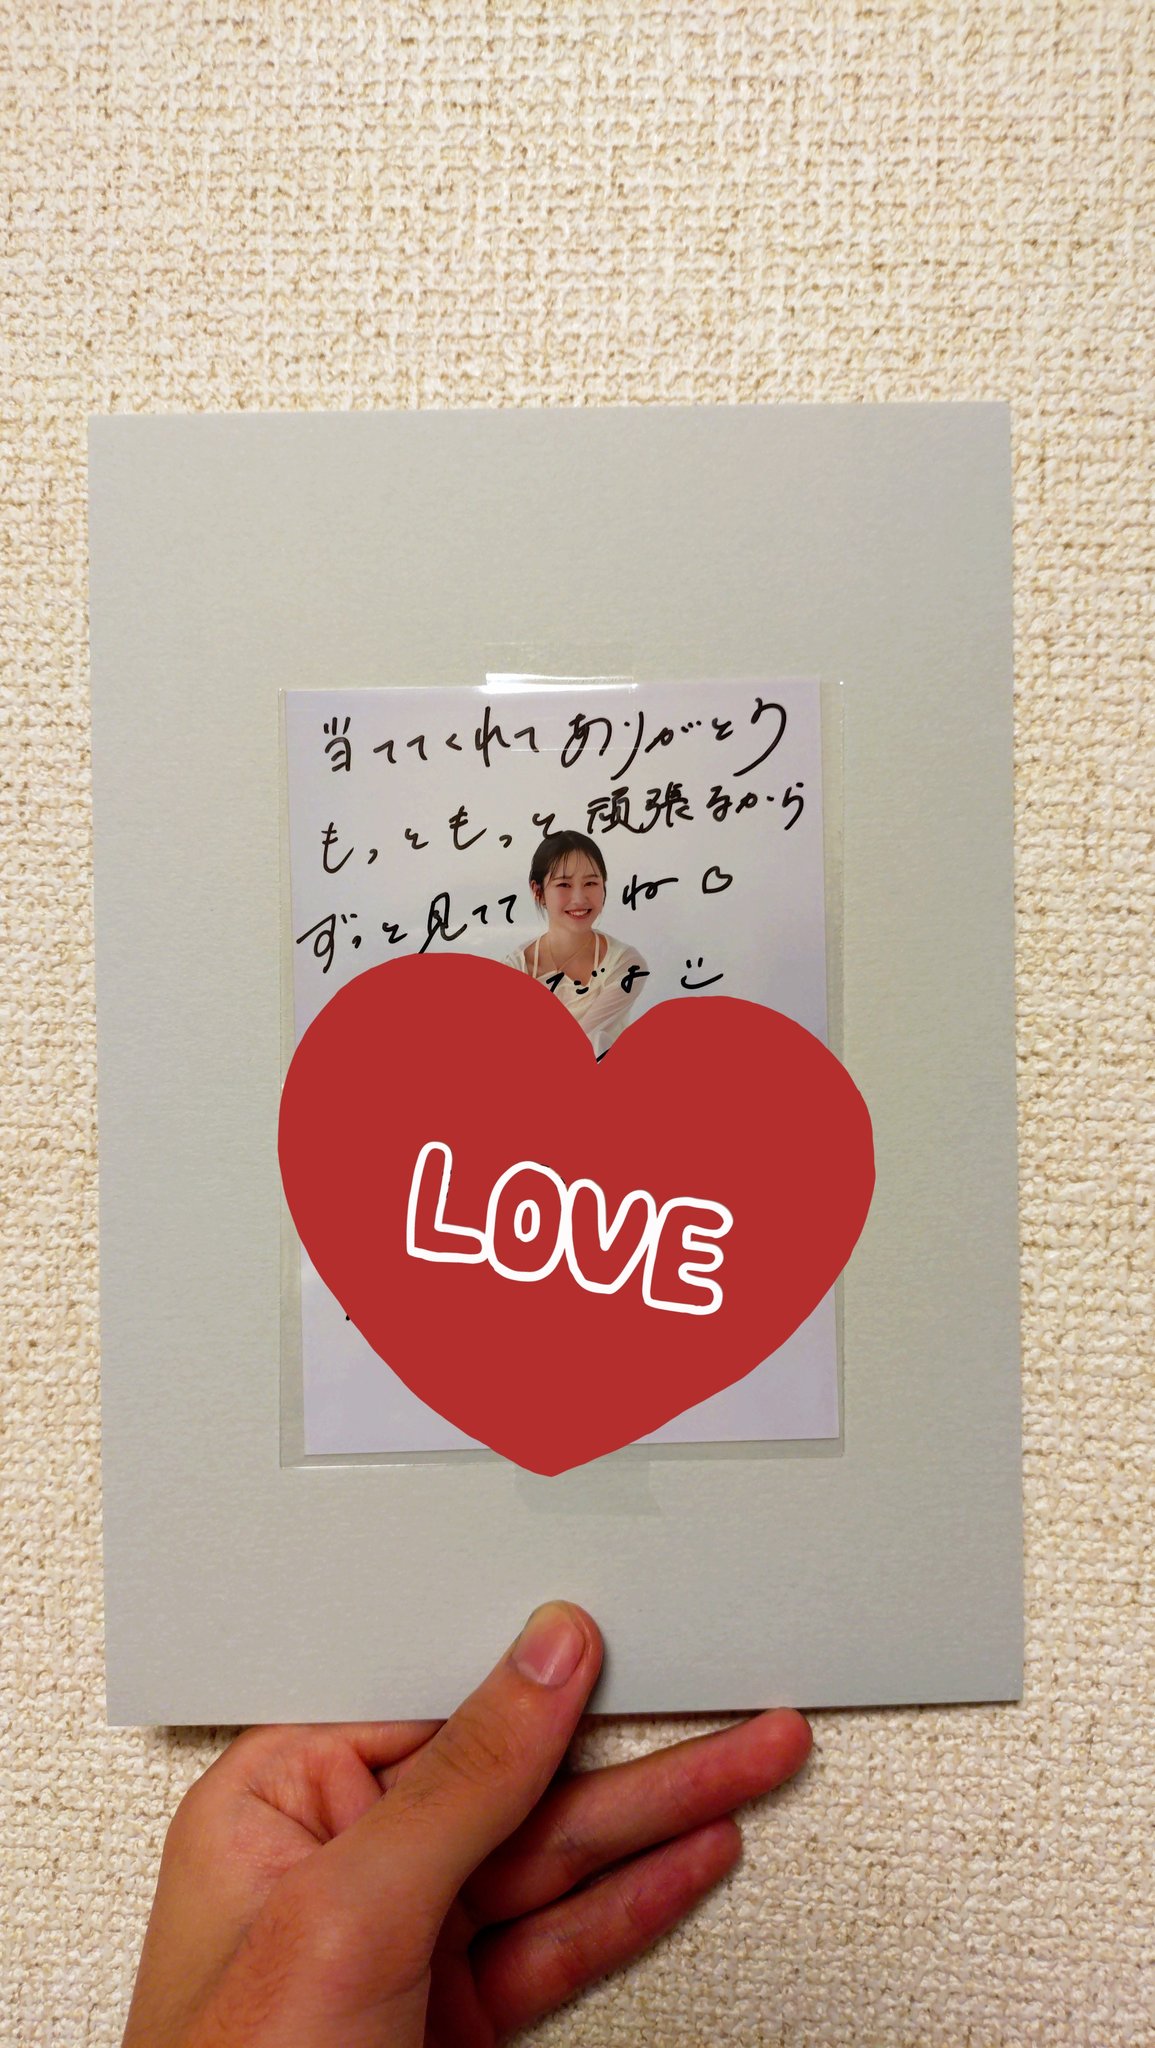 当ててくれてありがとう
もっともっと頑張るから
ずっと見ててね♡
LOVE